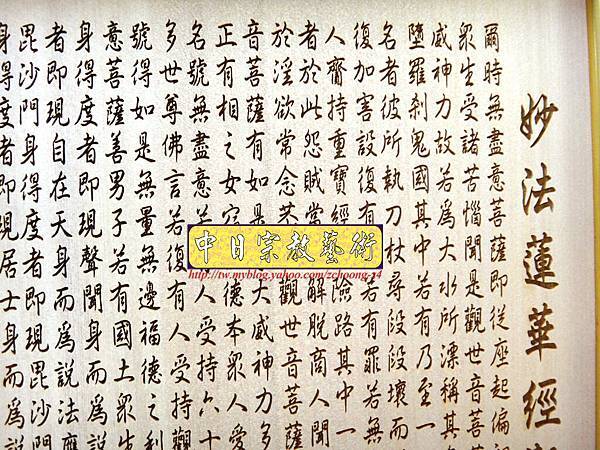 妙法蓮華經
爾時無盡意菩薩即從座起偏
眾生受諸苦惱聞是觀世音菩
威神力故若為大水所漂稱其
墮羅剎鬼國其中若有乃至一
名者彼所執刀杖尋段段壞而
復加害設復有 若有罪若無
人齎持重寶經 險路其中一
者於此怨賊當 解脫商人聞
於淫欲常念恭 觀世音菩薩
音菩薩有如是 大威神力多
正有相之女宿 德本眾人愛
名號無盡意若 人受持六十
多世尊佛言若復有人受持觀
號得如是無量無邊福德之利
意菩薩善男子若有國土眾生
身得度者即現聲聞身而為說
者即現自在天身而為說法應
毘沙門身得度者即現毘沙門
身得度者即現居士身而為說
中日宗教藝術
http://tw.myblog.yahoo.com/zchoong-14